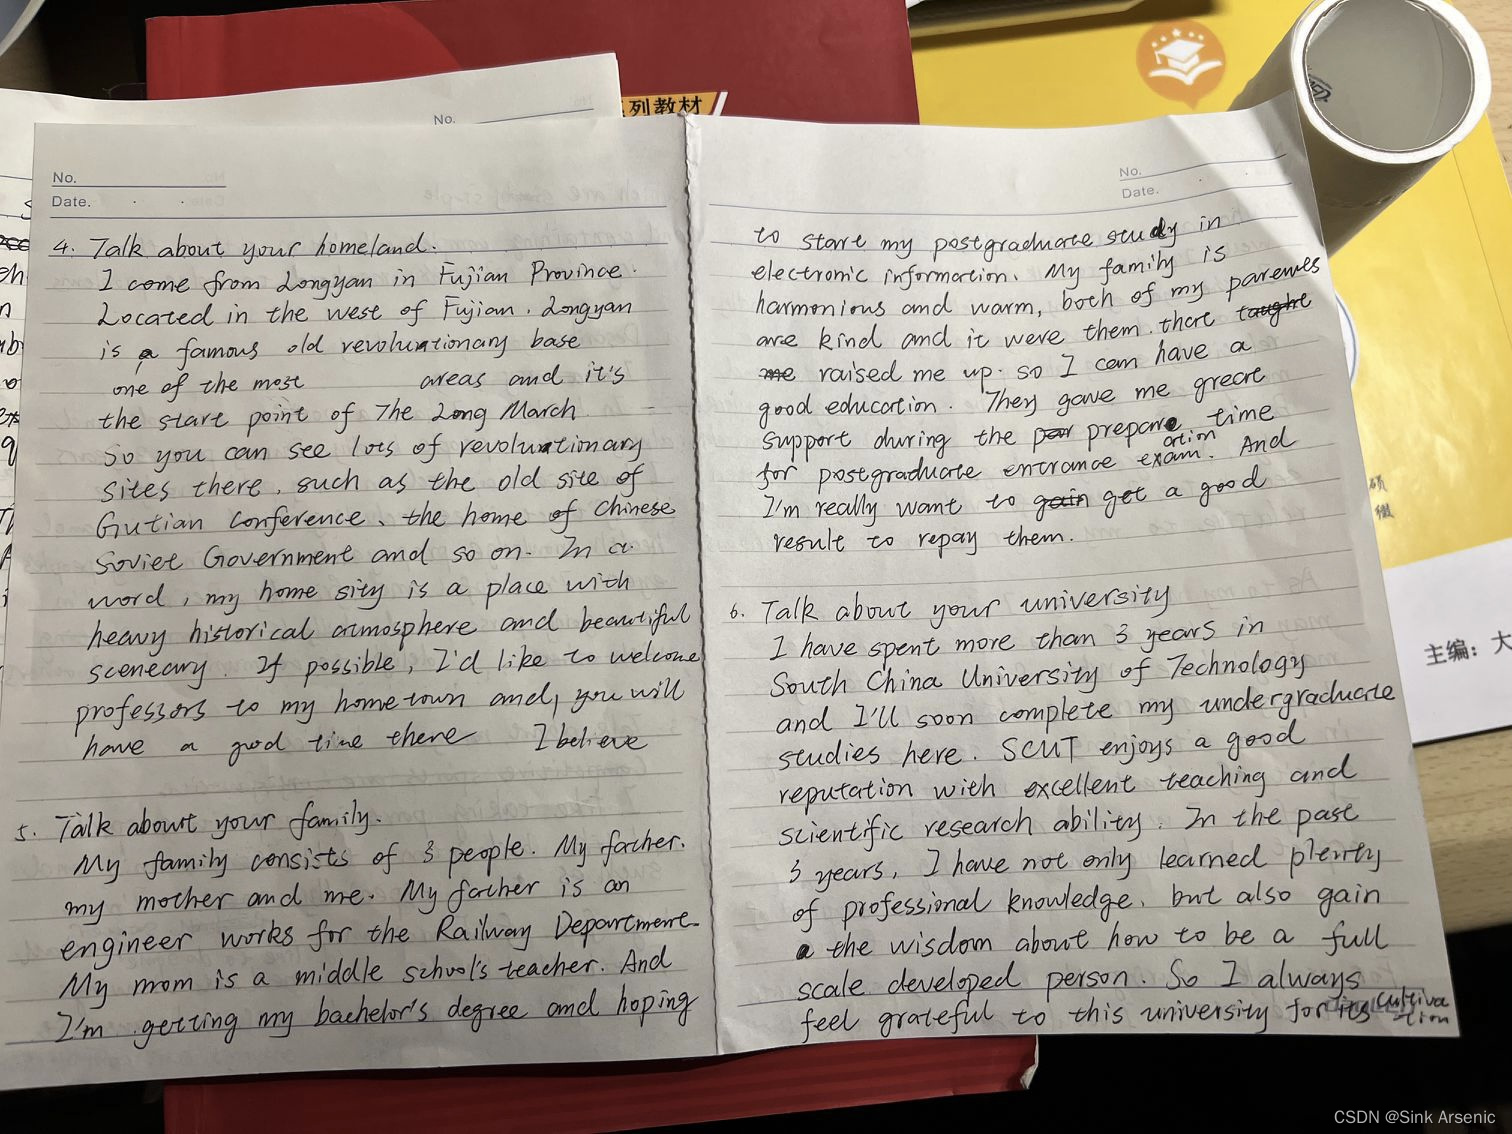 列教材
No.
No.
Date.
4. Talk about your homeland.
I come from Longyan in Fujian Province.
Located in the west of Fujian. Longyan
is a famous old revolutionary base
one of the most areas and it's
the start point of The Long March
so you can see lots of revolutionary
sites there, such as the old site of
Gutian Conference、the home of Chinese
Soviet Government and so on. In a
word, my home sity is a place with
heavy historical atmosphere and beautiful
sceneary. If possible, I'd like to welcome
professors to my hometown and, you will
have a good time there I believe
5. Talk about your family.
My family consists of 3 people. My father.
my mother and me. My father is an
engineer works for the Railway Department
My mom is a middle school's teacher. And
I'm getting my bachelor's degree and hoping
No.
Date.
to start my postgraduate study in
electronic information. My family is
harmonious and warm, both of my parents
are kind and it were them that taught
me raised me up. so I can have a
good education. They gave me great
support during the par preparation time
for postgraduate entrance exam. And
I'm really want to gain get a good
result to repay them.
6. Talk about your university
I have spent more than 3 years in
South China University of Technology
and I'll soon complete my undergraduate
studies here. SCUT enjoys a good
reputation with excellent teaching and
scientific research ability. In the past
3 years, I have not only learned plenty
of professional knowledge, but also gain
the wisdom about how to be a full
scale developed person. So I always
feel grateful to this university for its cultivation
硕
主编：大
CSDN @Sink Arsenic